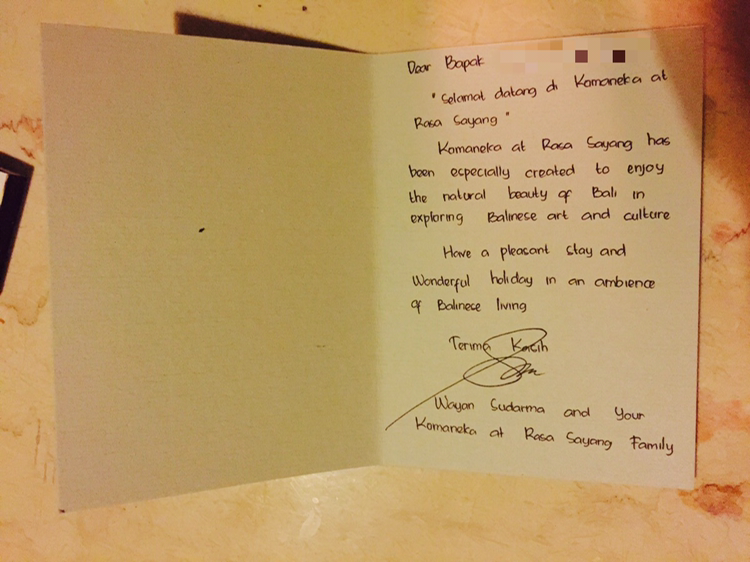 Dear Bapak
"Selamat datang di Komaneka at
Rasa Sayang"
Komaneka at Rasa Sayang has
been especially created to enjoy
the natural beauty of Bali in
exploring Balinese art and culture
Have a pleasant stay and
Wonderful holiday in an ambience
of Balinese living
Terima Kasih
Wayan Sudarma and Your
Komaneka at Rasa Sayang Family